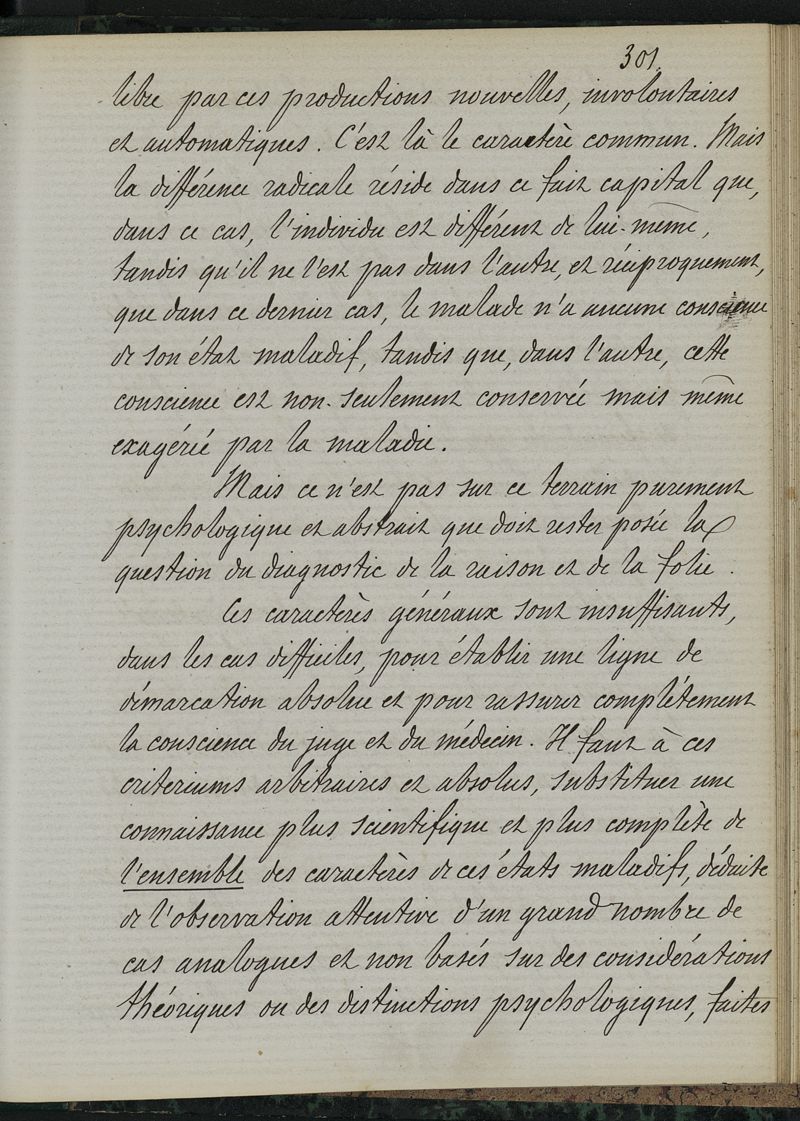 301.
libre par ces productions nouvelles, involontaires
et automatiques. C'est là le caractère commun. Mais
la différence radicale réside dans ce fait capital que,
dans ce cas, l'individu est différent de lui-même,
tandis qu'il ne l'est pas dans l'autre, et réciproquement,
que dans ce dernier cas, le malade n'a aucune conscience
de son état maladif, tandis que, dans l'autre, cette
conscience est non-seulement conservée mais même
exagérée par la maladie.
Mais ce n'est pas sur ce terrain purement
psychologique et abstrait que doit rester posée la
question du diagnostic de la raison et de la folie.
Ces caractères généraux sont insuffisants,
dans les cas difficiles, pour établir une ligne de
démarcation absolue et pour rassurer complètement
la conscience du juge et du médecin. Il faut à ces
criteriums arbitraires et absolus, substituer une
connaissance plus scientifique et plus complète de
l'ensemble des caractères de ces états maladifs, déduite
de l'observation attentive d'un grand nombre de
cas analogues et non basés sur des considérations
théoriques ou des distinctions psychologiques, faites